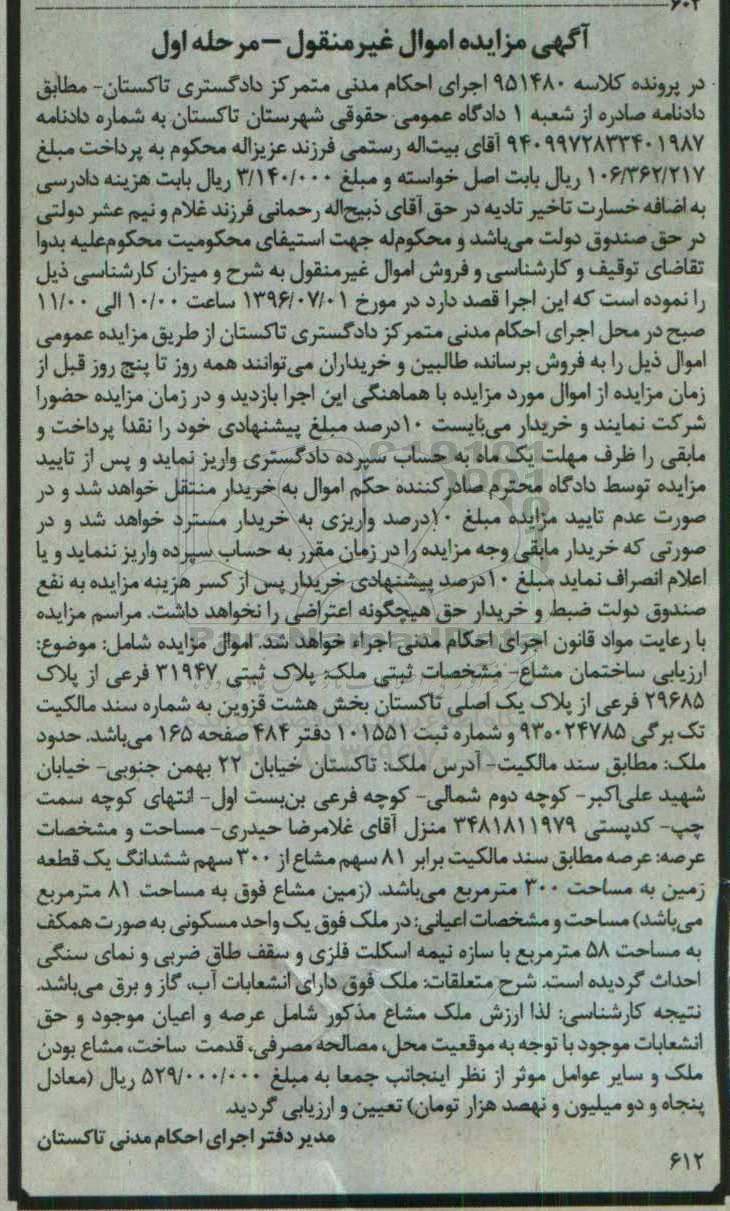 ۶۰۲
آگهی مزایده اموال غیرمنقول – مرحله اول
در پرونده کلاسه ۹۵۱۴۸۰ اجرای احکام مدنی متمرکز دادگستری تاکستان- مطابق
دادنامه صادره از شعبه ۱ دادگاه عمومی حقوقی شهرستان تاکستان به شماره دادنامه
۹۴۰۹۹۷۲۸۳۳۴۰۱۹۸۷ آقای بیت‌اله رستمی فرزند عزیزاله محکوم به پرداخت مبلغ
۱۰۶/۳۶۲/۲۱۷ ریال بابت اصل خواسته و مبلغ ۳/۱۴۰/۰۰۰ ریال بابت هزینه دادرسی
به اضافه خسارت تاخیر تادیه در حق آقای ذبیح‌اله رحمانی فرزند غلام و نیم عشر دولتی
در حق صندوق دولت می‌باشد و محکوم‌له جهت استیفای محکومیت محکوم‌علیه بدوا
تقاضای توقیف و کارشناسی و فروش اموال غیرمنقول به شرح و میزان کارشناسی ذیل
را نموده است که این اجرا قصد دارد در مورخ ۱۳۹۶/۰۷/۰۱ ساعت ۱۰/۰۰ الی ۱۱/۰۰
صبح در محل اجرای احکام مدنی متمرکز دادگستری تاکستان از طریق مزایده عمومی
اموال ذیل را به فروش برساند، طالبین و خریداران می‌توانند همه روز تا پنج روز قبل از
زمان مزایده از اموال مورد مزایده با هماهنگی این اجرا بازدید و در زمان مزایده حضورا
شرکت نمایند و خریدار می‌بایست ۱۰درصد مبلغ پیشنهادی خود را نقدا پرداخت و
مابقی را ظرف مهلت یک ماه به حساب سپرده دادگستری واریز نماید و پس از تایید
مزایده توسط دادگاه محترم صادرکننده حکم اموال به خریدار منتقل خواهد شد و در
صورت عدم تایید مزایده مبلغ ۱۰درصد واریزی به خریدار مسترد خواهد شد و در
صورتی که خریدار مابقی وجه مزایده را در زمان مقرر به حساب سپرده واریز ننماید و یا
اعلام انصراف نماید مبلغ ۱۰درصد پیشنهادی خریدار پس از کسر هزینه مزایده به نفع
صندوق دولت ضبط و خریدار حق هیچگونه اعتراضی را نخواهد داشت. مراسم مزایده
با رعایت مواد قانون اجرای احکام مدنی اجراء خواهد شد. اموال مزایده شامل: موضوع:
ارزیابی ساختمان مشاع- مشخصات ثبتی ملک: پلاک ثبتی ۳۱۹۴۷ فرعی از پلاک
۲۹۶۸۵ فرعی از پلاک یک اصلی تاکستان بخش هشت قزوین به شماره سند مالکیت
تک برگی ۹۳۰۰۲۴۷۸۵ و شماره ثبت ۱۰۱۵۵۱ دفتر ۴۸۴ صفحه ۱۶۵ می‌باشد. حدود
ملک: مطابق سند مالکیت- آدرس ملک: تاکستان خیابان ۲۲ بهمن جنوبی- خیابان
شهید علی‌اکبر- کوچه دوم شمالی- کوچه فرعی بن‌بست اول- انتهای کوچه سمت
چپ- کدپستی ۳۴۸۱۸۱۱۹۷۹ منزل آقای غلامرضا حیدری- مساحت و مشخصات
عرصه: عرصه مطابق سند مالکیت برابر ۸۱ سهم مشاع از ۳۰۰ سهم ششدانگ یک قطعه
زمین به مساحت ۳۰۰ مترمربع می‌باشد. (زمین مشاع فوق به مساحت ۸۱ مترمربع
می‌باشد) مساحت و مشخصات اعیانی: در ملک فوق یک واحد مسکونی به صورت همکف
به مساحت ۵۸ مترمربع با سازه نیمه اسکلت فلزی و سقف طاق ضربی و نمای سنگی
احداث گردیده است. شرح متعلقات: ملک فوق دارای انشعابات آب، گاز و برق می‌باشد.
نتیجه کارشناسی: لذا ارزش ملک مشاع مذکور شامل عرصه و اعیان موجود و حق
انشعابات موجود با توجه به موقعیت محل، مصالحه مصرفی، قدمت ساخت، مشاع بودن
ملک و سایر عوامل موثر از نظر اینجانب جمعا به مبلغ ۵۲۹/۰۰۰/۰۰۰ ریال (معادل
پنجاه و دو میلیون و نهصد هزار تومان) تعیین و ارزیابی گردید.
مدیر دفتر اجرای احکام مدنی تاکستان
۶۱۲